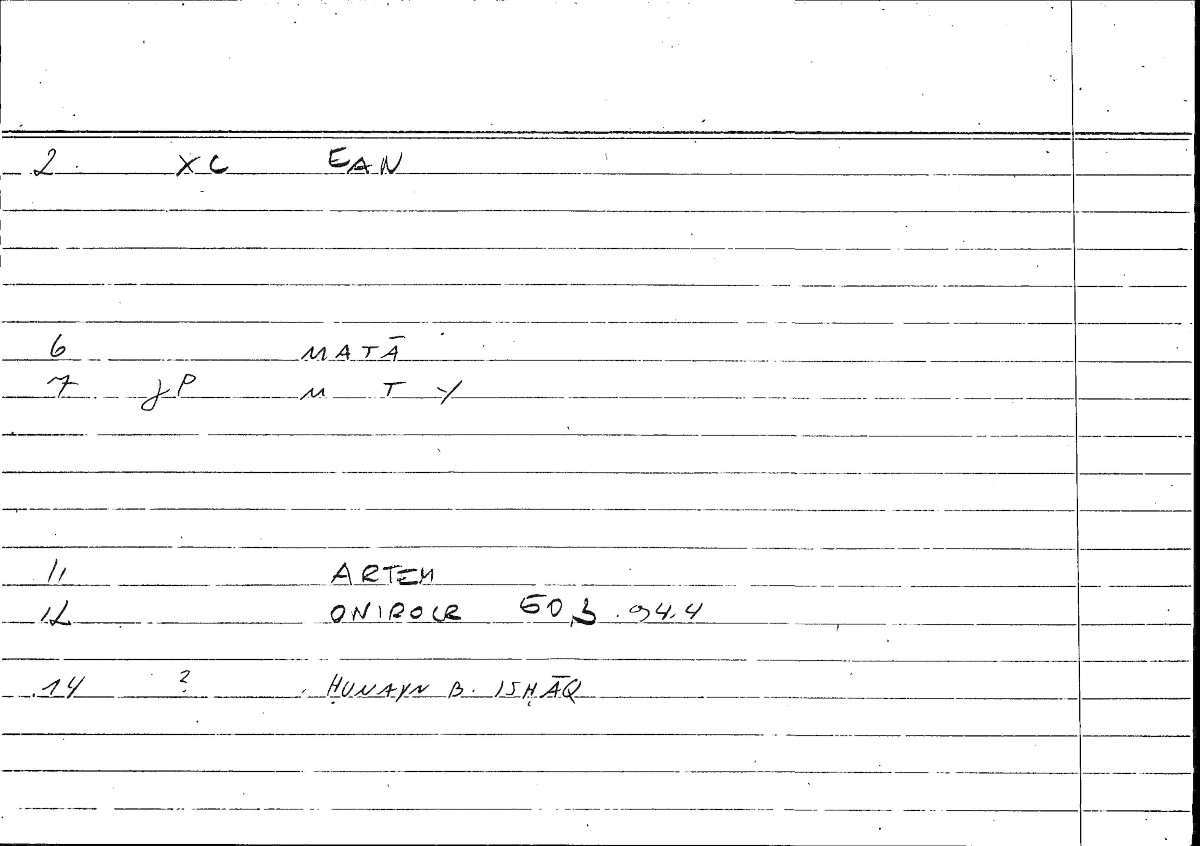 2. XC EAN
6 MATĀ
7 JP M T Y
11 ARTEM
12 ONIROCR GO 3.94.4
14 ? ḤUNAYN B. ISḤĀQ